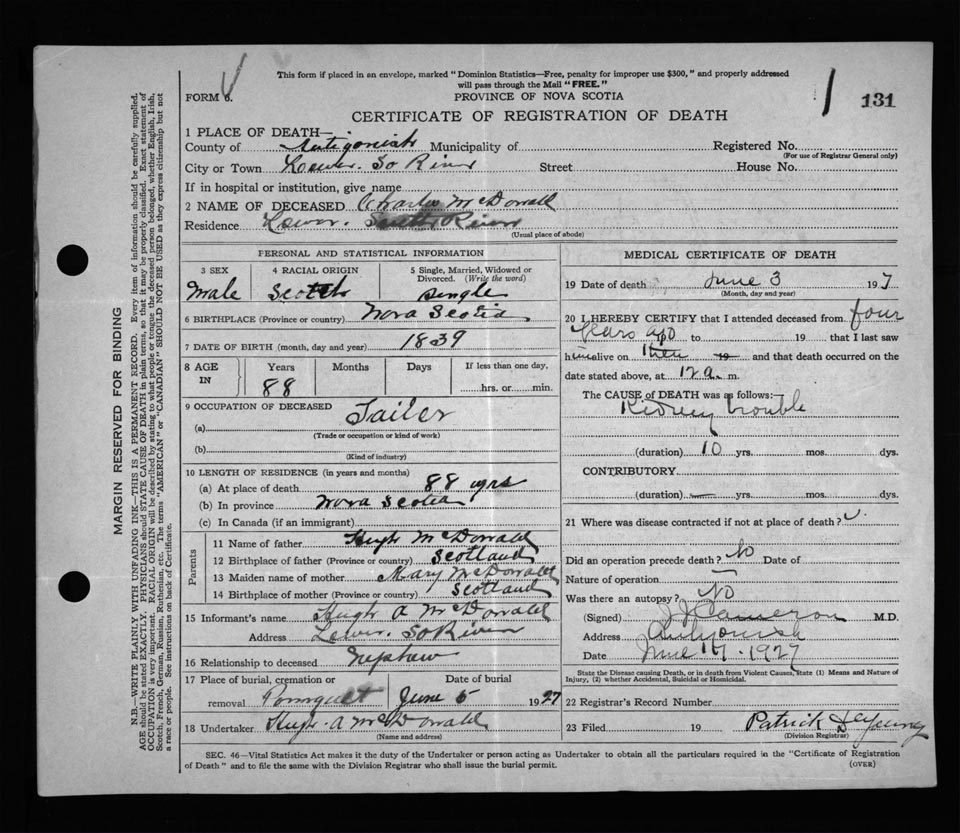 This form if placed in an envelope, marked "Dominion Statistics—Free, penalty for improper use $300," and properly addressed
will pass through the Mail "FREE."
FORM 6. PROVINCE OF NOVA SCOTIA 131
CERTIFICATE OF REGISTRATION OF DEATH
1 PLACE OF DEATH—
County of Antigonish Municipality of Registered No.
(For use of Registrar General only)
City or Town Lower. So River Street House No.
If in hospital or institution, give name
2 NAME OF DECEASED Charles McDonald
Residence Lower. South River
(Usual place of abode)
PERSONAL AND STATISTICAL INFORMATION
3 SEX 4 RACIAL ORIGIN 5 Single, Married, Widowed or Divorced. (Write the word)
Male Scotch single
6 BIRTHPLACE (Province or country) Nova Scotia
7 DATE OF BIRTH (month, day and year) 1839
8 AGE IN Years Months Days If less than one day,
88 hrs. or min.
9 OCCUPATION OF DECEASED
(a) Tailer
(Trade or occupation or kind of work)
(b)
(Kind of industry)
10 LENGTH OF RESIDENCE (in years and months)
(a) At place of death 88 yrs
(b) In province Nova Scotia
(c) In Canada (if an immigrant)
Parents
11 Name of father Hugh McDonald
12 Birthplace of father (Province or country) Scotland
13 Maiden name of mother Mary McDonald
14 Birthplace of mother (Province or country) Scotland
15 Informant's name Hugh A McDonald
Address Lower. So River
16 Relationship to deceased nephew
17 Place of burial, cremation or Date of burial
removal Pomquet June 5 1927
18 Undertaker Hugh A McDonald
(Name and address)
MEDICAL CERTIFICATE OF DEATH
19 Date of death June 3 1927
(Month, day and year)
20 I HEREBY CERTIFY that I attended deceased from four
years ago to 19 that I last saw
him alive on then 19 and that death occurred on the
date stated above, at 12 a. m.
The CAUSE OF DEATH was as follows:—
Kidney trouble
(duration) 10 yrs. mos. dys.
CONTRIBUTORY
(duration) yrs. mos. dys.
21 Where was disease contracted if not at place of death?
Did an operation precede death? No Date of
Nature of operation —
Was there an autopsy? No
(Signed) J J Cameron M.D.
Address Antigonish
Date June 17. 1927
State the Disease causing Death, or in death from Violent Causes, State (1) Means and Nature of Injury, (2) whether Accidental, Suicidal or Homicidal.
22 Registrar's Record Number
23 Filed 19 Patrick DeYoung
(Division Registrar)
SEC. 46—Vital Statistics Act makes it the duty of the Undertaker or person acting as Undertaker to obtain all the particulars required in the "Certificate of Registration
of Death" and to file the same with the Division Registrar who shall issue the burial permit. (OVER)
MARGIN RESERVED FOR BINDING
N.B.—WRITE PLAINLY WITH UNFADING INK—THIS IS A PERMANENT RECORD. Every item of information should be carefully supplied.
AGE should be stated EXACTLY. PHYSICIANS should STATE CAUSE OF DEATH in plain terms, so that it may be properly classified. Exact statement of
OCCUPATION is very important. RACIAL ORIGIN will be described by stating to what people or tongue the deceased person belonged, whether English, Irish,
Scotch, French, German, Russian, Ruthenian, etc. The terms "AMERICAN" or "CANADIAN" SHOULD NOT BE USED as they express citizenship but not
a race or people. See instructions on back of Certificate.